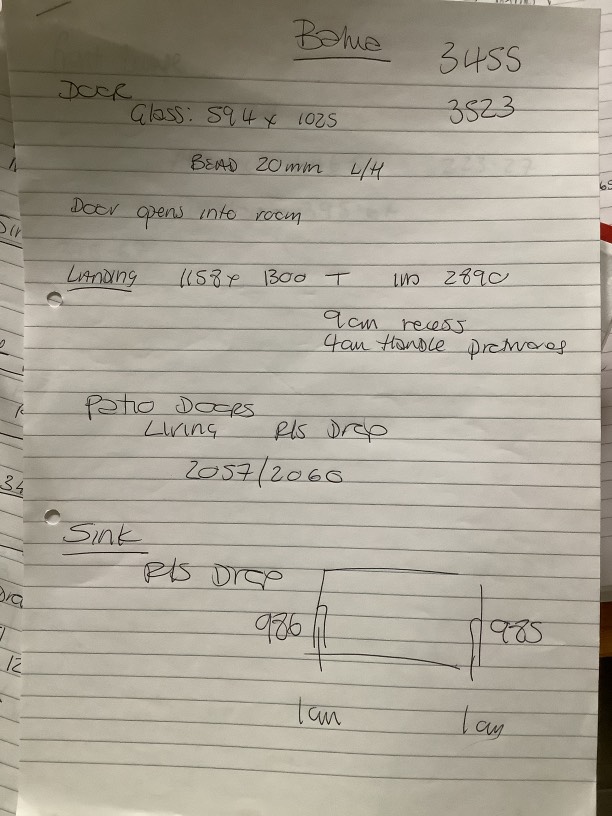 3455
3523
DOOR
Glass: 594 x 1025
BEAD 20mm L/H
Door opens into room
LANDING 1158 x 1300 T 2890
9cm recess
4cm Handle
Patio Doors
Living Rls Drop
2057/2060
Sink
Rls Drop
986 985
1cm 1cm